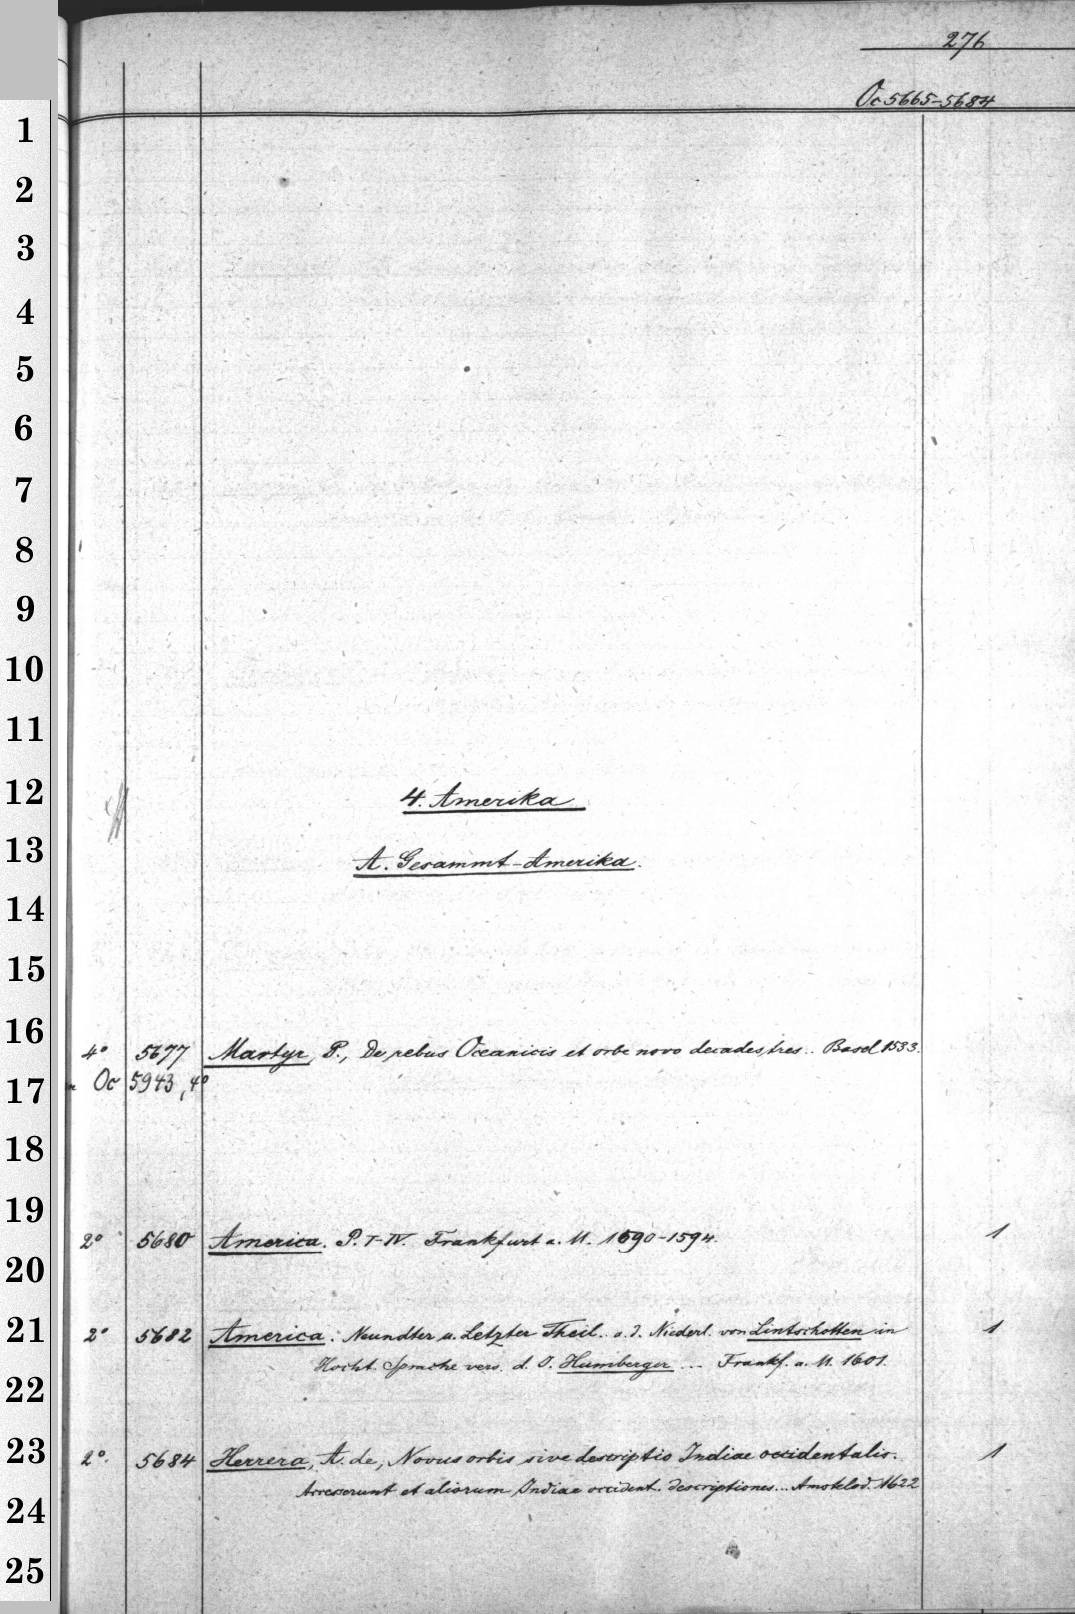 276
Oc 5665-5684
1
2
3
4
5
6
7
8
9
10
11
12
4. Amerika
13
A. Gesammt-Amerika.
14
15
16
4° 5677 Martyr, P., De rebus Oceanicis et orbe novo decades tres .. Basel 1533.
17
Oc 5943, 4°
18
19
2° 5680 America. P. I-IV. Frankfurt a. M. 1590-1594. 1
20
21
2° 5682 America. Neundter u. Letzter Theil.. a. d. Niederl. von Lintschotten in 1
Hocht. Sprache vers. d. J. Humberger ... Frankf. a. M. 1601.
22
23
2°. 5684 Herrera, A. de, Novus orbis sive descriptio Indiae occidentalis. 1
Accesserunt et aliorum Indiae occident. descriptiones... Amstelod. 1622
24
25